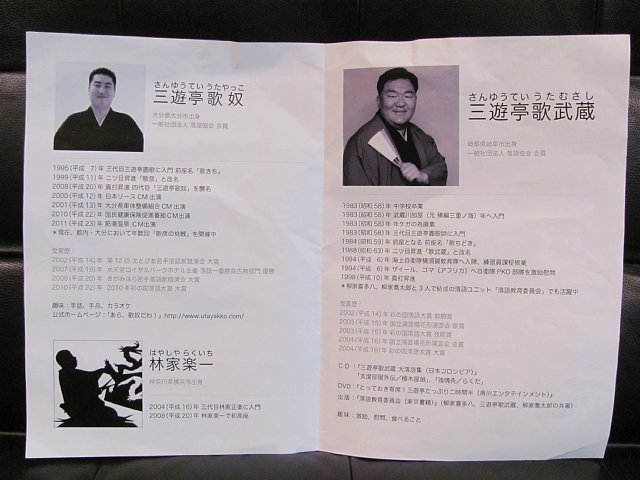 さんゆうてい うたやっこ
三遊亭歌奴
大分県大分市出身
一般社団法人 落語協会 会員
1995(平成 7)年 三代目三遊亭圓歌に入門 前座名「歌きち」
1999(平成11)年 二ツ目昇進「歌彦」と改名
2008(平成20)年 真打昇進 四代目「三遊亭歌奴」を襲名
2000(平成12)年 日本リースCM出演
2001(平成13)年 大分県車体整備組合CM出演
2010(平成22)年 国民健康保険促進番組CM出演
2011(平成23)年 舫湯温泉CM出演
*現在、都内・大分において年数回「歌彦の挑戦」を開催中
受賞歴:
2002(平成14)年 第12回 北とぴあ若手落語家競演会 大賞
2007(平成19)年 水天宮ロイヤルパークホテル主催 落語一番勝負古典部門 優勝
2008(平成20)年 さがみはら若手落語家競演会 大賞
2010(平成22)年 2010年 彩の国落語大賞 大賞
趣味:手話、手品、カラオケ
公式ホームページ:「あら、歌奴だわ!」http://www.utayakko.com/
はやしや らくいち
林家楽一
神奈川県横浜市出身
2004(平成16)年 三代目林家正楽に入門
2008(平成20)年 林家楽一で初高座
さんゆうてい うたむさし
三遊亭歌武蔵
岐阜県岐阜市出身
一般社団法人 落語協会 会員
1983(昭和58)年 中学校卒業
1983(昭和58)年 武蔵川部屋(元 横綱三重ノ海)年へ入門
1983(昭和58)年 年ケガの為廃業
1983(昭和58)年 三代目三遊亭圓歌師に入門
1984(昭和59)年 前座となる 前座名「歌ちどき」
1988(昭和63)年 二ツ目昇進「歌武蔵」と改名
1994(平成 6)年 海上自衛隊横須賀教育隊へ入隊、練習員課程修業
1994(平成 6)年 ザイール、ゴマ(アフリカ)へ自衛隊PKO部隊を激励慰問
1998(平成10)年 真打昇進
*柳家喜多八、柳家喬太郎と3人で結成の落語ユニット「落語教育委員会」でも活躍中
受賞歴:
2002(平成14)年 彩の国落語大賞 敢闘賞
2003(平成15)年 国立演芸場花形演芸会 銀賞
2003(平成15)年 彩の国落語大賞 技能賞
2004(平成16)年 国立演芸場花形演芸会 金賞
2004(平成16)年 彩の国落語大賞 大賞
CD:「三遊亭歌武蔵 大落語集(日本コロンビア)」
「支度部屋外伝/植木屋娘」、「強情灸/らくだ」
DVD:「とっておき寄席!三遊亭たっぷり二時間半(角川エンタテインメント)」
出版:「落語教育委員会(東京書籍)」(柳家喜多八、三遊亭歌武蔵、柳家喬太郎の共著)
趣味:激励、慰問、食べること